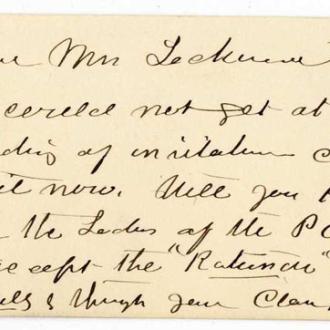 Mrs Lockwood
could not get at
of invitation
it now. Will you
the Ladies of the P
accept the "Rotunda"
& through your Clau